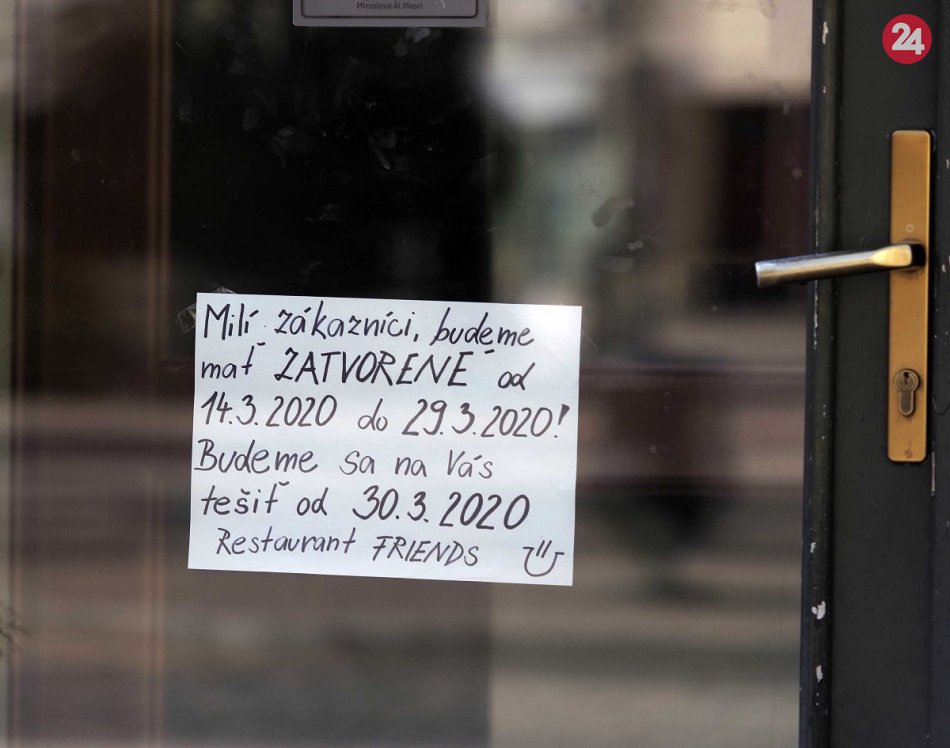 Miroslava Al Masri
24
Milí zákazníci, budeme
mať ZATVORENÉ od
14.3.2020 do 29.3.2020!
Budeme sa na Vás
tešiť od 30.3.2020
Restaurant FRIENDS